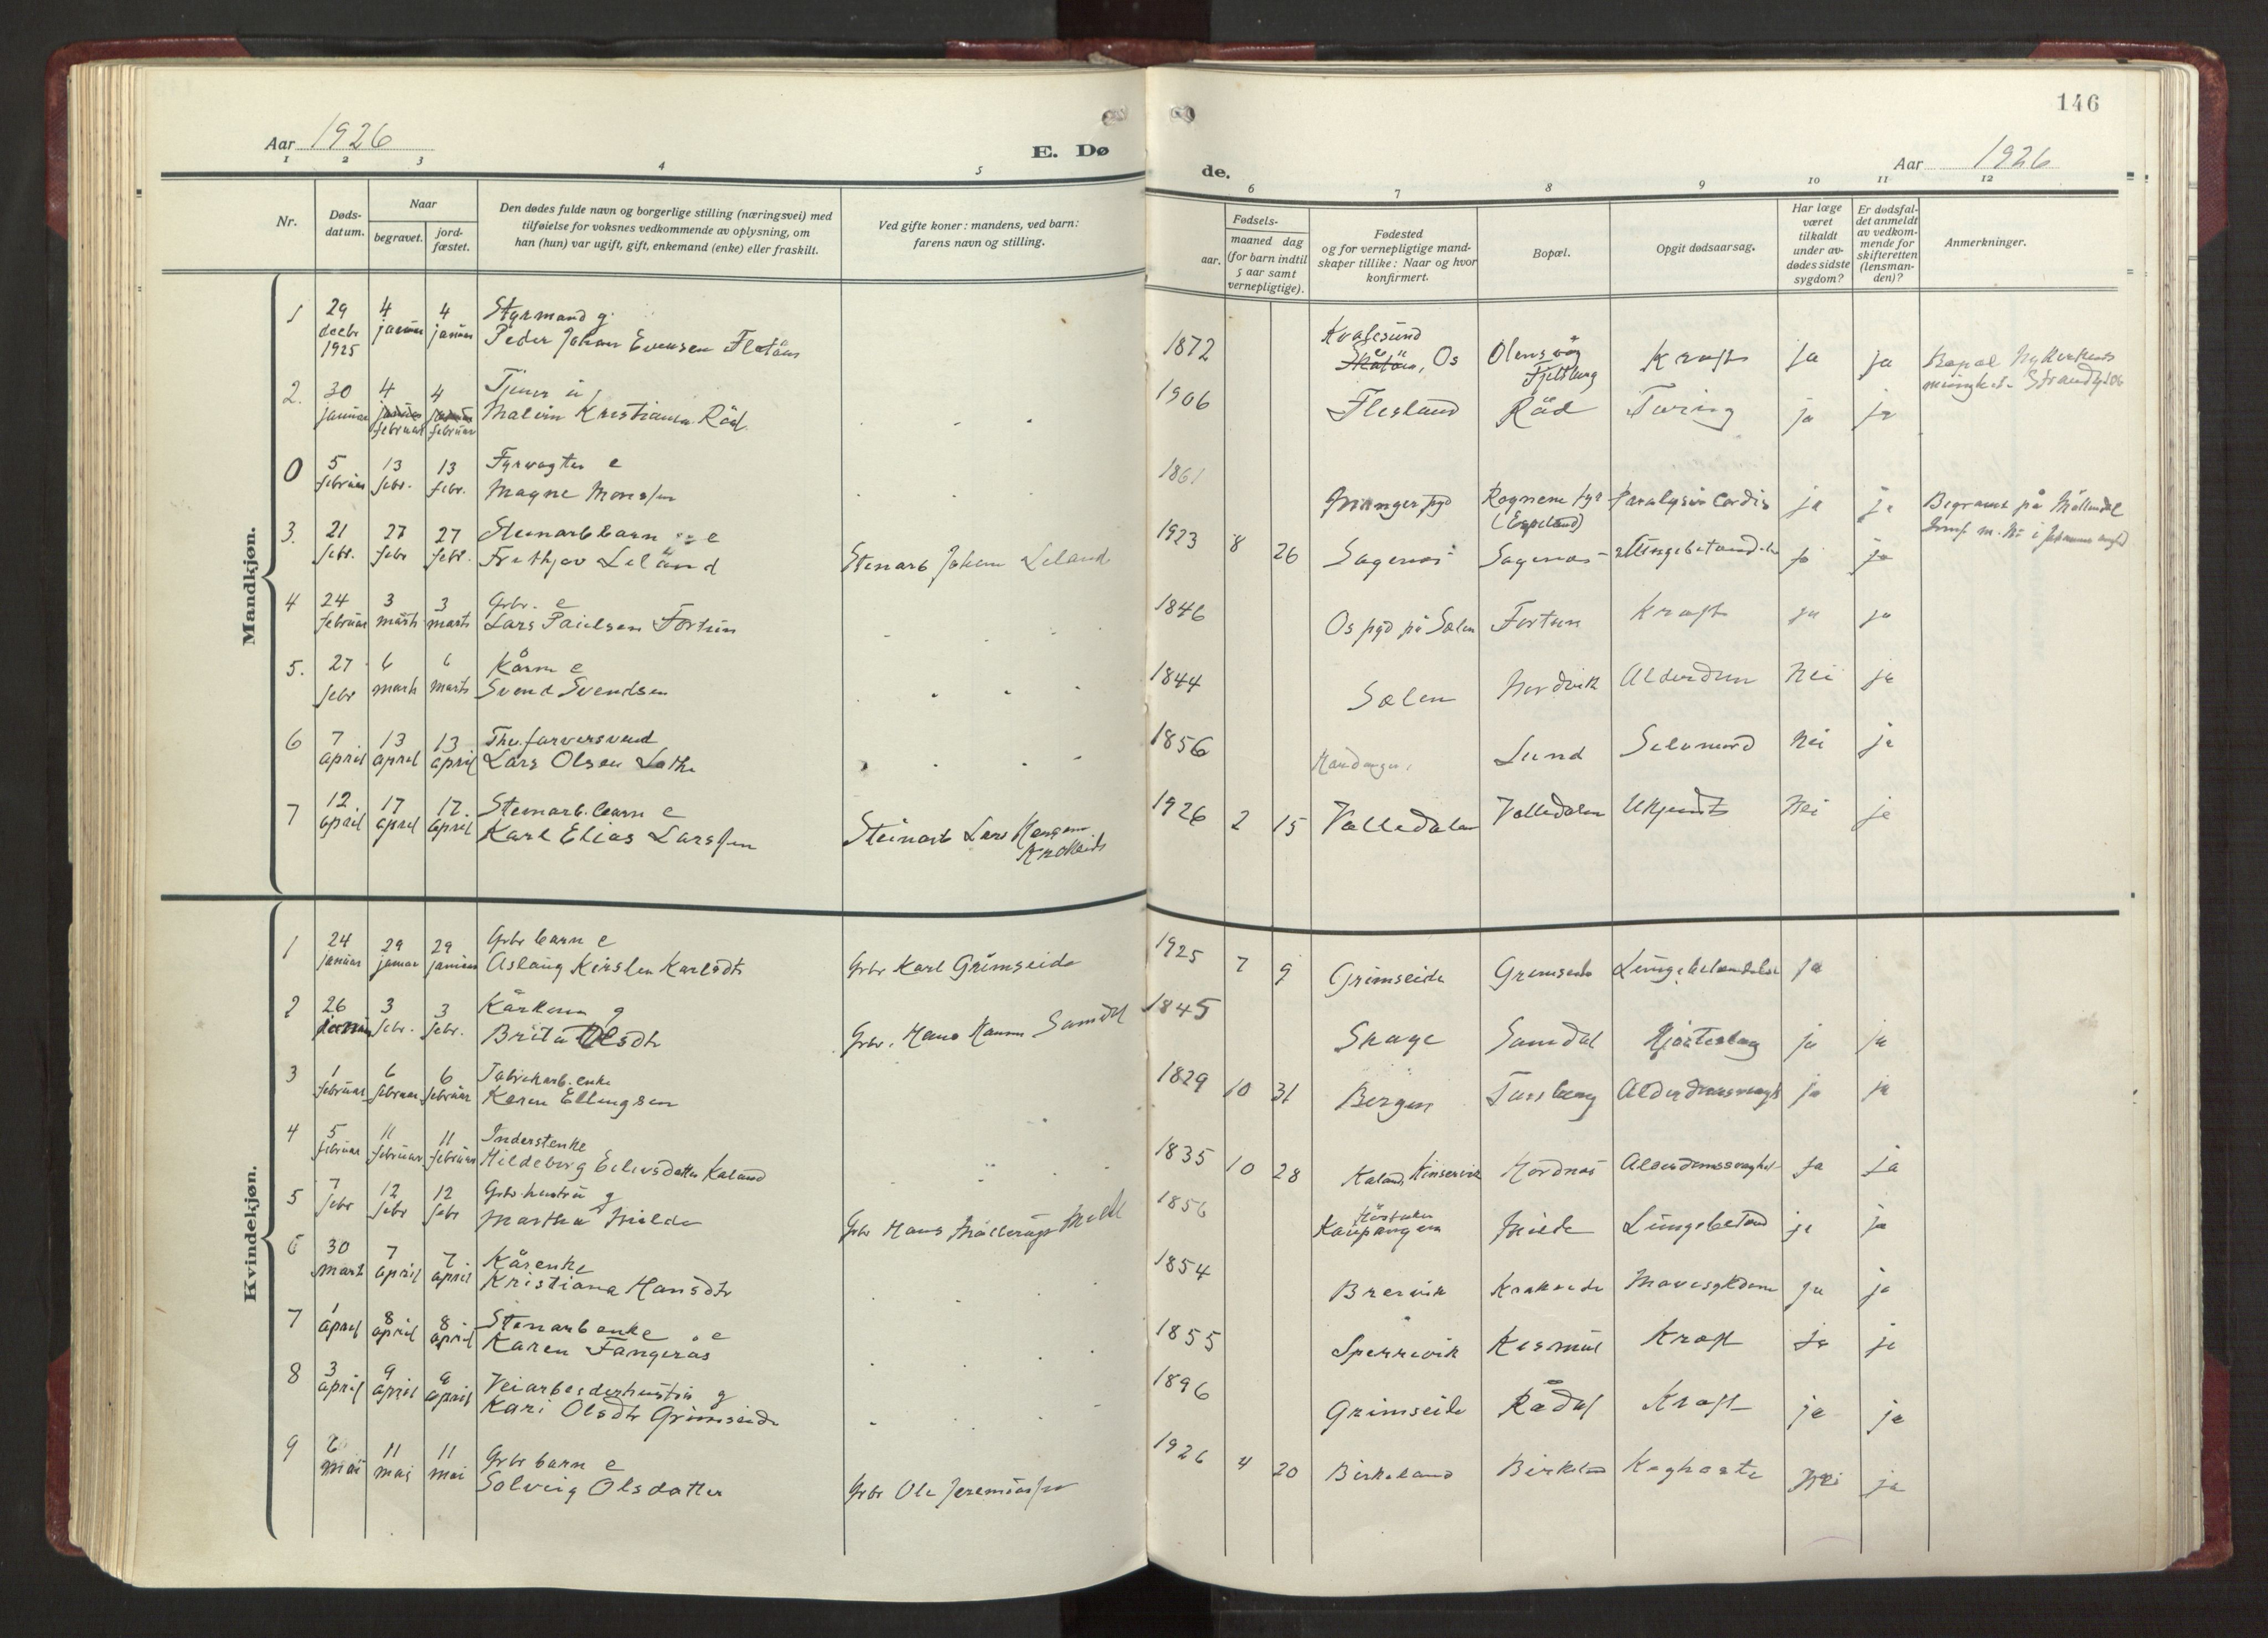 146
Aar 1926
E. Dø
de.
Aar 1926
1 2 3 4 5 6 7 8 9 10 11 12
Nr.
Døds-
datum.
Naar
begravet.
jord-
fæstet.
Den dødes fulde navn og borgerlige stilling (næringsvei) med
tilføielse for voksnes vedkommende av oplysning, om
han (hun) var ugift, gift, enkemand (enke) eller fraskilt.
Ved gifte koner: mandens, ved barn:
farens navn og stilling.
Fødsels-
aar.
maaned dag
(for barn indtil
5 aar samt
vernepligtige).
Fødested
og for vernepligtige mand-
skaper tillike: Naar og hvor
konfirmert.
Bopæl.
Opgit dødsaarsag.
Har læge
været
tilkaldt
under av-
dødes sidste
sygdom?
Er dødsfal-
det anmeldt
av vedkom-
mende for
skifteretten
(lensman-
den)?
Anmerkninger.
Mandkjøn.
1 29 decbr 1925 4 januar 4 januar Styrmand g.
Peder Johan Evensen 1872 Kvalesund
Os Kraft ja ja Bopæl
2. 30 januar 4 februar 4 februar
Kristiansen Råd 1906 Flesland Råd Tæring ja ja
0 5 februar 13 febr. 13 febr. Fyrvogter e
Magne Monssen 1861 Manger pgd Rognene fyr (Espeland) Paralysis Cordis ja ja Begravet på Møllendal
3. 21 febr. 27 febr 27 febr. Stenarb barn e
Frithjov Leland Stenarb Johan Leland 1923 8 26 Sagenos Sagenos ja ja
4 24 februar 3 marts 3 marts Grbr. e
Lars Paulsen Fortun 1846 Os pgd på Sælen Fortun Kræft ja ja
5. 27 febr 6 marts 6 marts Kårm e
Svend Svendsen 1844 Sælen Nordvik Alderdom Nei ja
6 7 april 13 april 13 april Fhv. farversvend
Lars Olsen Lothe 1856 Hardanger. Lund Selvmord Nei ja
7 12 april 17 april 17. april Stenarb. barn e
Karl Elias Larssen Steinarb Lars Krokeide 1926 2 15 Valledalen Valledalen Ukjendt Nei ja
Kvindekjøn.
1 24 januar 29 januar 29 januar Grbr barn e
Aslaug Kirsten Karlsdtr Grbr Karl Grimseide 1925 7 9 Grimseide Grimseide Lungebetændelse ja
2 26 januar 3 febr. 3 febr. Kårkone g
Brita Olsdtr Grbr. Hans Hansen Samdal 1845 Skage Samdal Hjerteslag ja ja
3 1 februar 6 februar 6 februar Fabrikarb. enke
Karen Ellingsen 1829 10 31 Bergen Alderdomssvaghet ja ja
4 5 februar 11 februar 11 februar Inderstenke
Hildeborg Eilevsdatter Kaland 1835 10 28 Kaland, Kinservik Hordnæs Alderdomssvaghet ja ja
5 7 febr 12 febr 12 febr Grbr hustru g
Martha Milde Grbr Hans Møllerup Milde 1856 Kaupangen Milde Lungebetænd ja ja
6 30 mart 7 april 7. april Kårenke
Kristiana Hansdtr 1854 Brervik Krokeide Mavesykdom ja ja
7 1 april 8 april 8 april Stenarb enke e
Karen Fangerås 1855 Sperrevik Kismul Kræft ja ja
8 3 april 9 april 9 april Veiarbeiderhustru g
Kari Olsdtr Grimseide 1896 Grimseide Rådal Kræft ja ja
9 6 mai 11 mai 11 mai Grbr barn e
Solveig Olsdatter Grbr Ole Jeremiassen 1926 4 20 Birkeland Birkeland Kighoste Nei ja